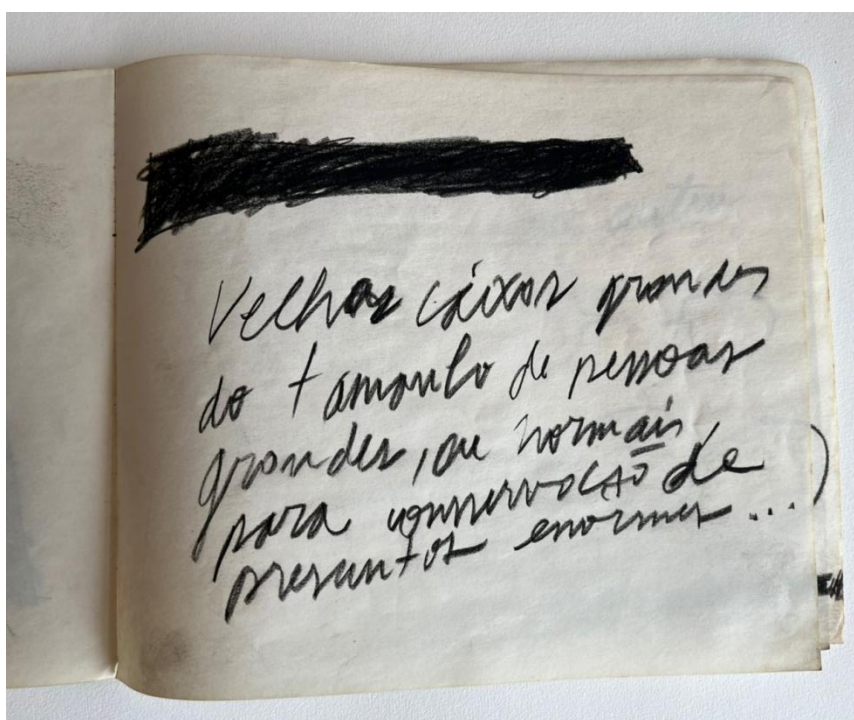 Velhas caixas grandes
do tamanho de pessoas
grandes, ou normais
para conservação de
presuntos enormes...)